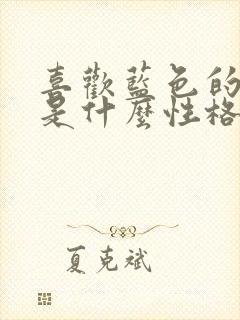 喜歡藍色的
是什麼性格
夏克斌